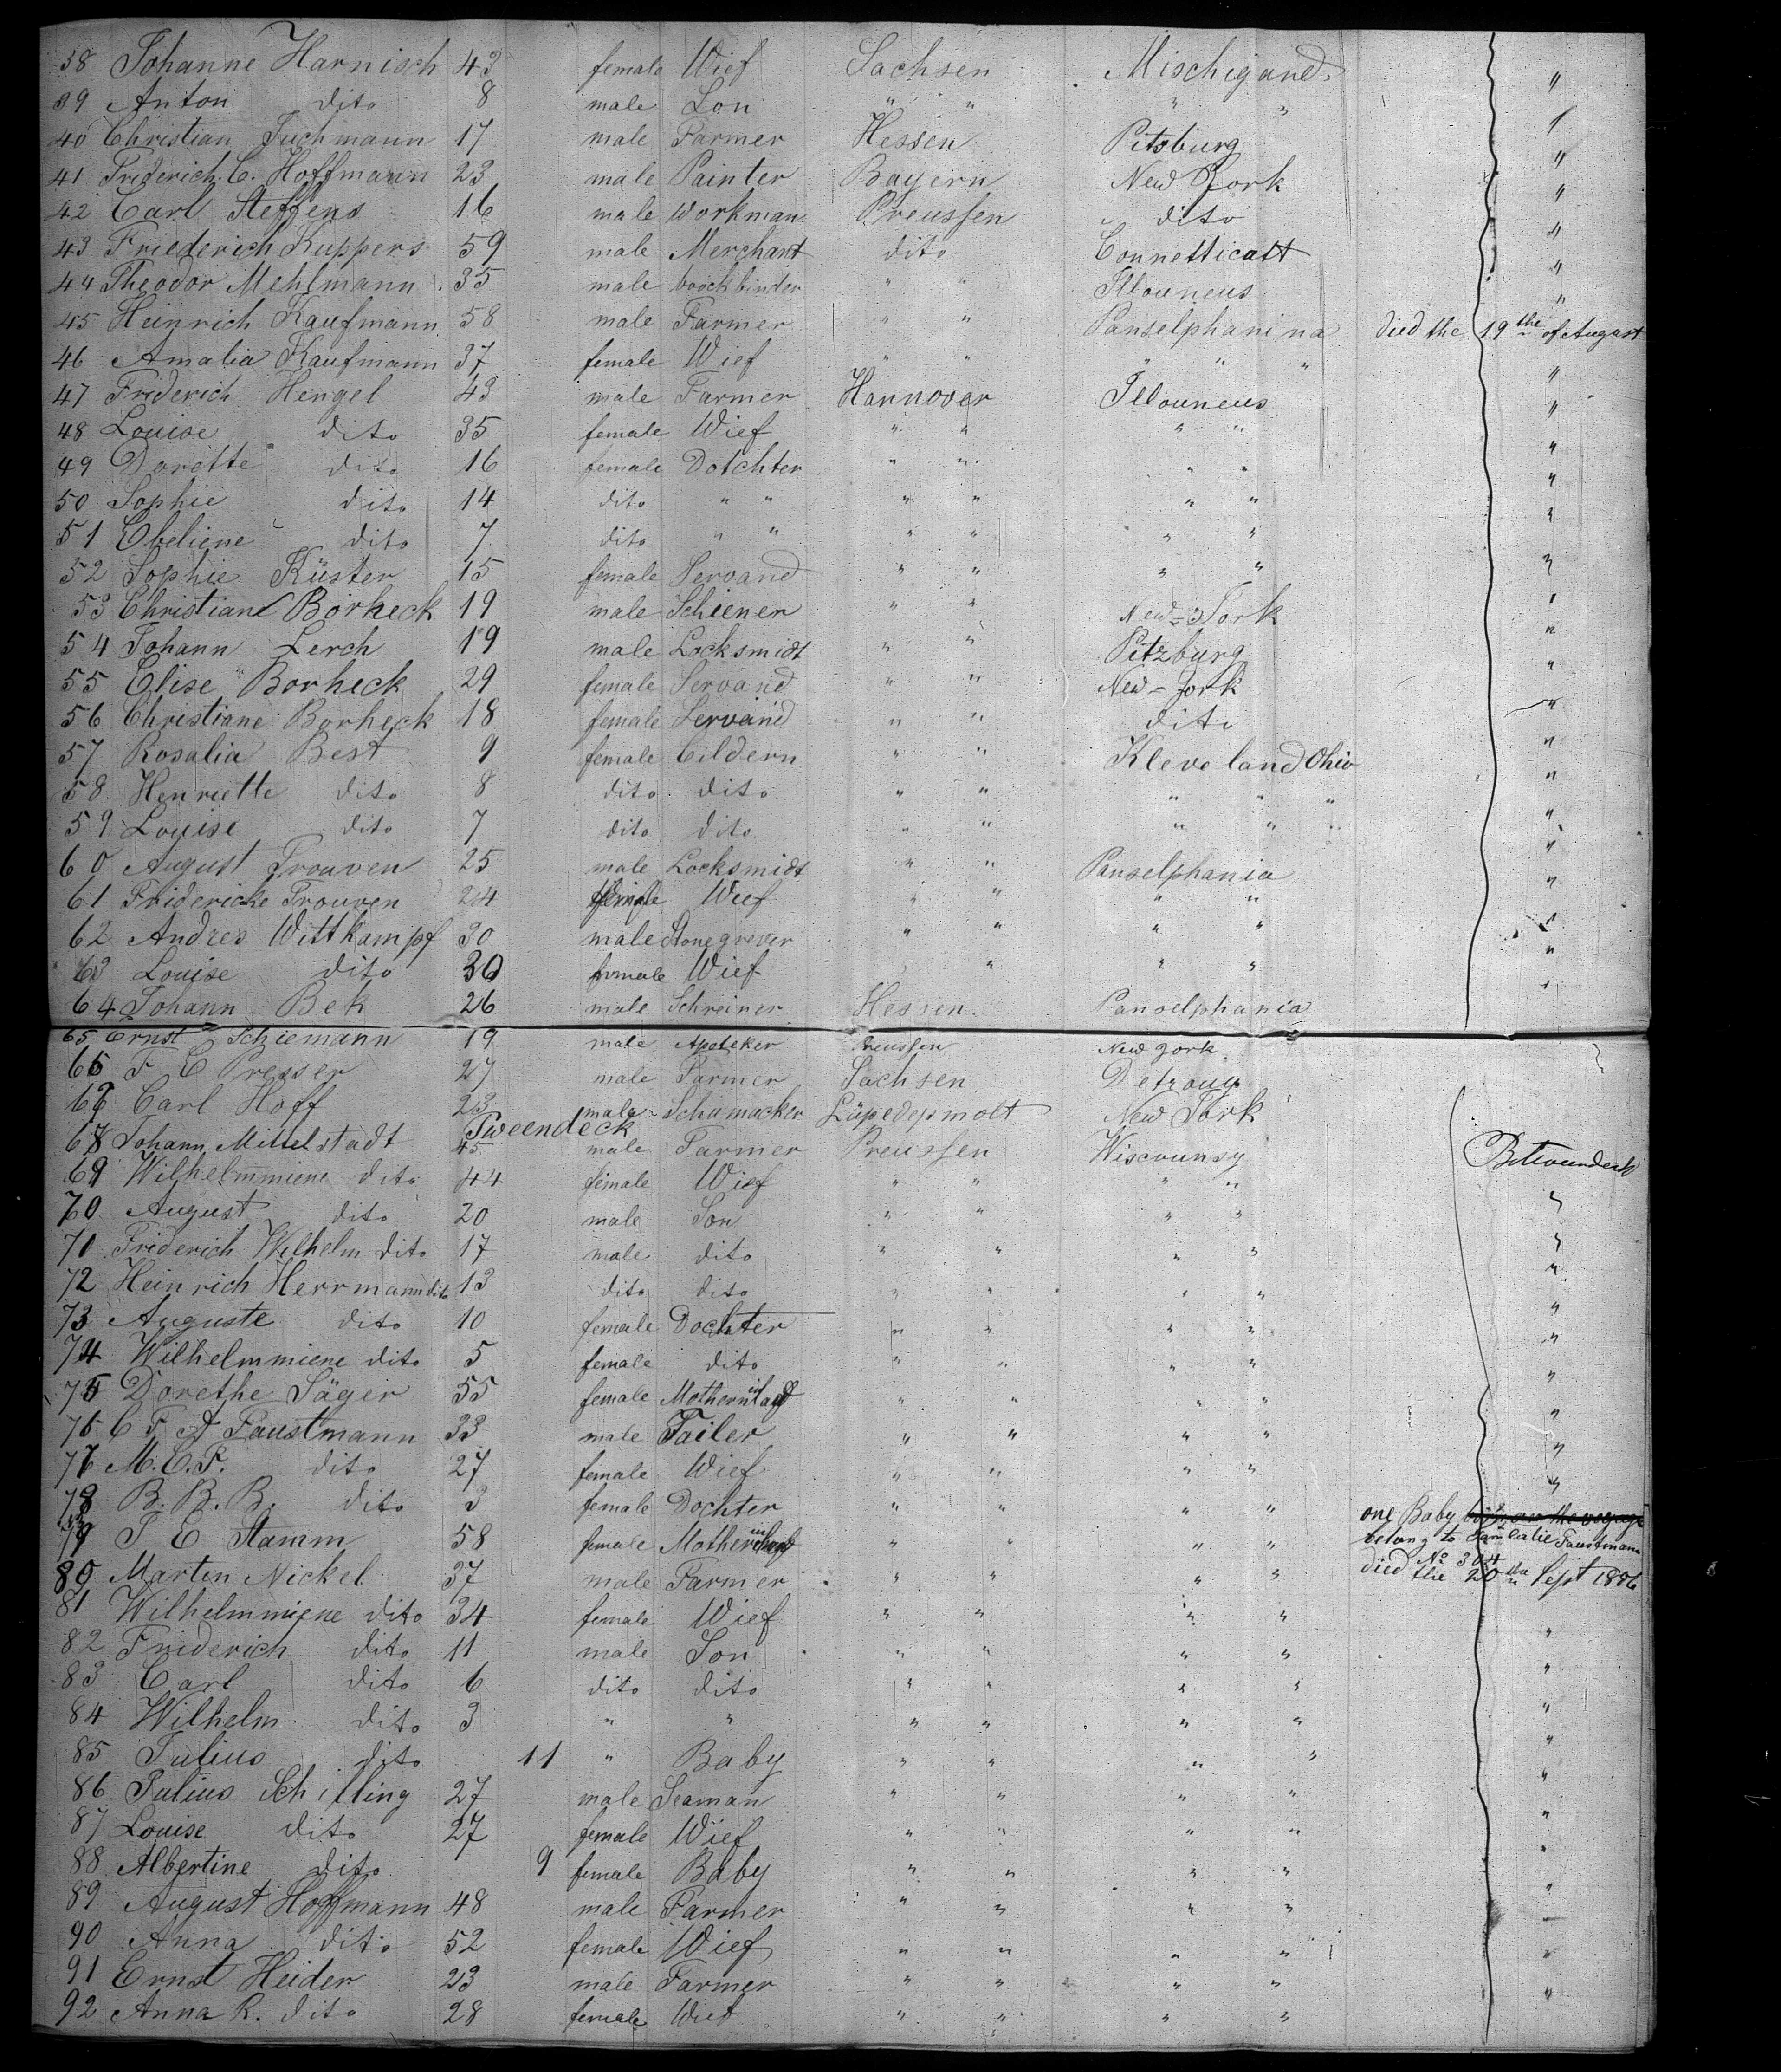 38 Johanne Harnisch 43 female Wief Sachsen Mischigand "
39 Anton dito 8 male Son " " " " "
40 Christian Tuchmann 17 male Farmer Hessen Pitsburg "
41 Friderich C. Hoffmann 23 male Painter Bayern New York "
42 Carl Steffens 16 male Workman Preussen dito "
43 Friederich Kuppers 59 male Merchant dito Connetticatt "
44 Theodor Mehlmann 35 male boockbinder " " Illouneus "
45 Heinrich Kaufmann 58 male Farmer " " Panselphanina died the 19 the of August
46 Amalia Kaufmann 37 female Wief " " " " " "
47 Friderich Hengel 43 male Farmer Hannover Illouneus "
48 Louise dito 35 female Wief " " " " "
49 Dorette dito 16 female Dotchter " " " " "
50 Sophie dito 14 dito " " " " " " "
51 Ebeliene dito 7 dito " " " " " " "
52 Sophie Küster 15 female Servand " " " " "
53 Christian Borheck 19 male Schiener " " New-York "
54 Johann Lerch 19 male Locksmidt " " Pitzburg "
55 Elise Borheck 29 female Servand " " New-York "
56 Christiane Borheck 18 female Servand " " dito "
57 Rosalia Best 9 female Cildern " " Kleveland Ohio "
58 Henriette dito 8 dito dito " " " " " "
59 Louise dito 7 dito dito " " " " " "
60 August Trouven 25 male Locksmidt " " Panselphania "
61 Fridericke Trouven 24 female Wief " " " " "
62 Andres Wittkampf 30 male Stonegrever " " " " "
63 Louise dito 30 female Wief " " " "
64 Johann Bek 26 male Schreiner Hessen Panselphania
65 Ernst Schiemann 19 male Apoteker Preussen New York
66 F C Presser 27 male Farmer Sachsen Detroug
67 Carl Hoff 23 male Schumacker Lüpedepmolt New York
Tweendeck
68 Johann Mittelstadt 45 male Farmer Preussen Wiscounsy
69 Wilhelmmiene dito 44 female Wief " " " " "
70 August dito 20 male Son " " " " "
71 Friderich Wilhelm dito 17 male dito " " " " "
72 Heinrich Herrmann dito 13 dito dito " " " " "
73 Auguste dito 10 female Dochter " " " " "
74 Wilhelmmiene dito 5 female dito " " " " "
75 Dorethe Jäger 55 female Mother in " " " " "
76 C F A Faustmann 33 male Tailer " " " " "
77 M. C. F. dito 27 female Wief " " " " "
78 B. B. B. dito 3 female Dochter " " " " one Baby born on the voyage
79 J E Stamm 58 female Mother in " " " " belong to Familie Faustmann
No 304
80 Marten Nickel 37 male Farmer " " " " died the 20 Sept 1856
81 Wilhelmmiene dito 34 female Wief " " " " "
82 Friderich dito 11 male Son " " " " "
83 Carl dito 6 dito dito " " " " "
84 Wilhelm dito 3 " " " " " " "
85 Julius dito 11 " Baby " " " " "
86 Julius Schilling 27 male Seaman " " " " "
87 Louise dito 27 female Wief " " " " "
88 Albertine dito 9 female Baby " " " " "
89 August Hoffmann 48 male Farmer " " " " "
90 Anna dito 52 female Wief " " " " "
91 Ernst Heider 23 male Farmer " " " " "
92 Anna R. dito 28 female Wief " " " "